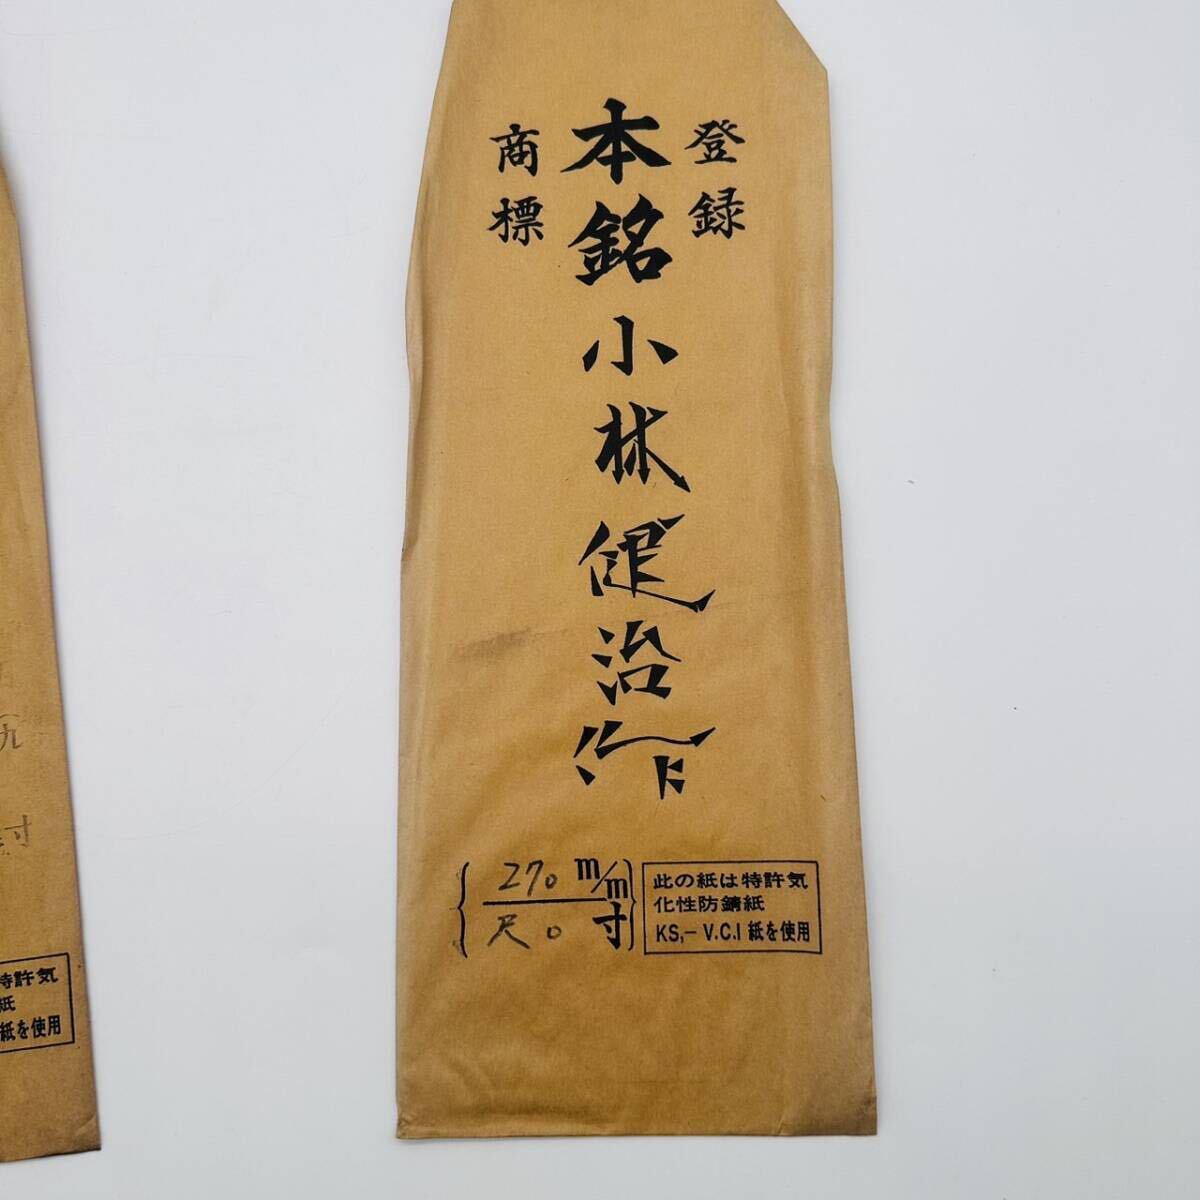 登録
本銘小林健治作
商標
270 m/m
尺0寸
此の紙は特許気
化性防錆紙
KS,- V.C.I 紙を使用
九
寸
特許気
紙
紙を使用